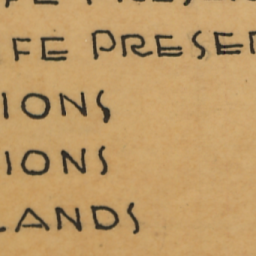 FE PRESE
IONS
IONS
LANDS